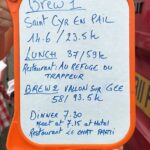 BREW 1
SAINT CYR EN PAIL
14.6 / 23.5k
LUNCH 37/59k
RESTAURANT AU REFUGE DU
TRAPPEUR
BREW 2 VALLON SUR GEE
58/ 93.5k
DINNER 7.30
MEET AT 7.15 at HOTEL
RESTAURANT LE CHAT PARTI